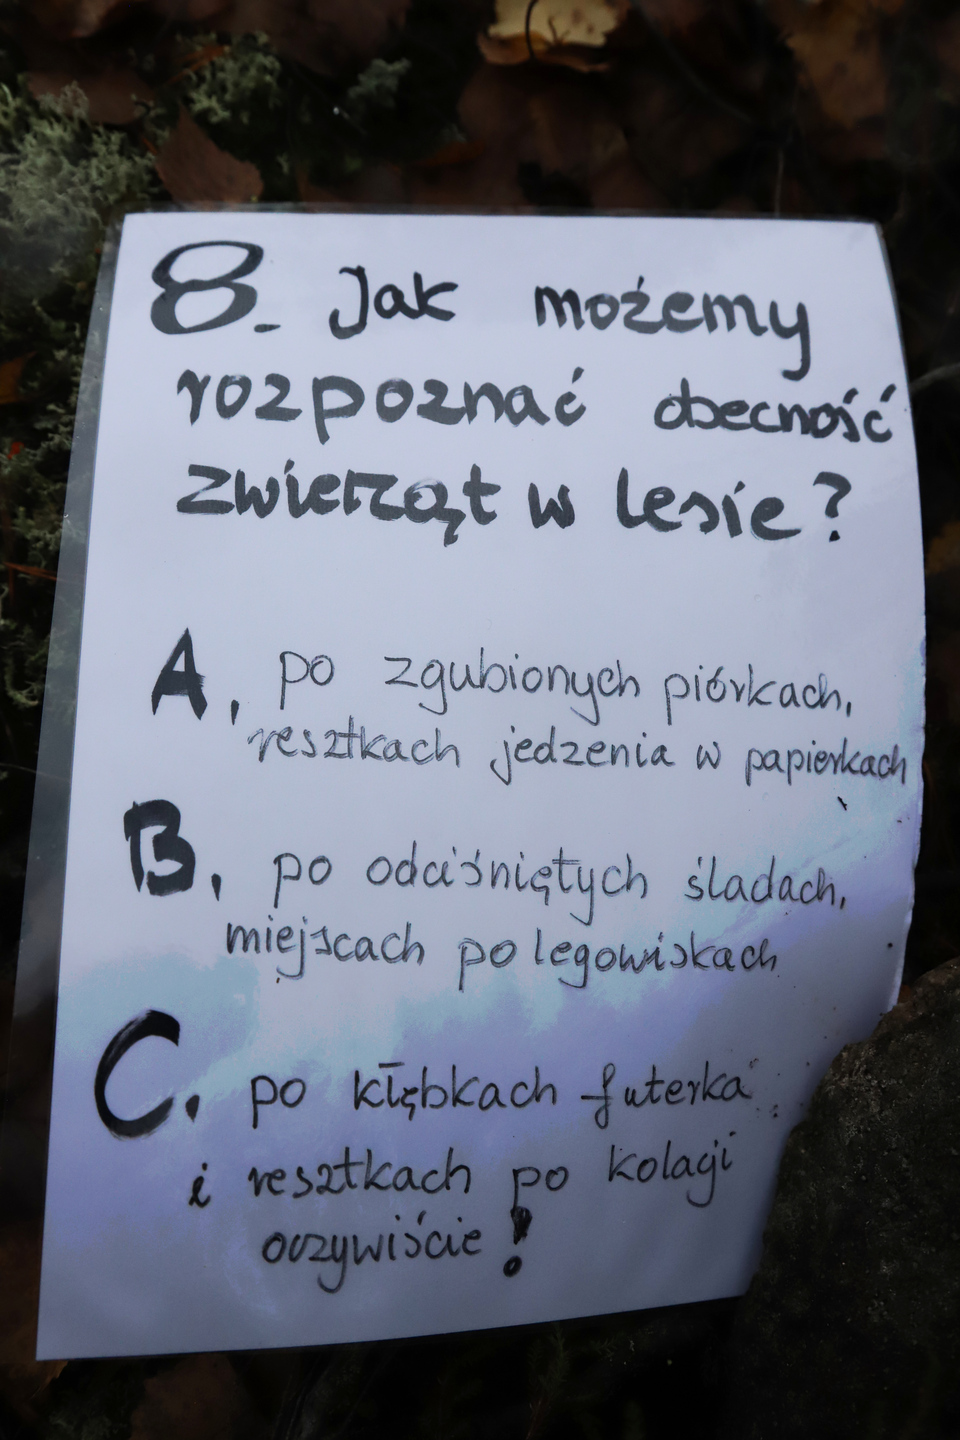 8. Jak możemy
rozpoznać obecność
zwierząt w lesie?
A, po zgubionych piórkach,
resztkach jedzenia w papierkach
B, po odciśniętych śladach,
miejscach po legowiskach
C. po kłębkach futerka
i resztkach po kolacji
oczywiście!